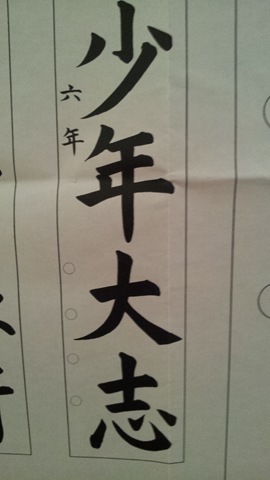 少年大志
六年